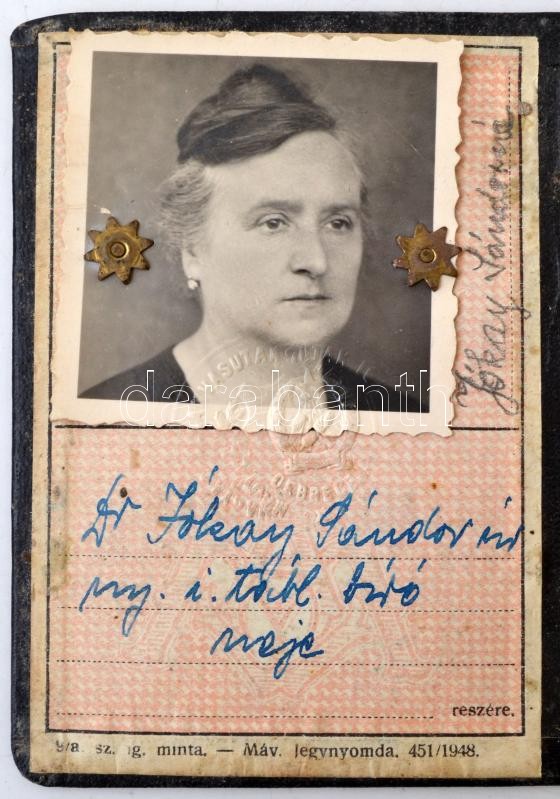 Jókay Sándorné
darabanth.com
Dr Jókay Sándor úr
ny. i. tábl. biró
neje
részére.
9/a. sz. ig. minta. — Máv. jegynyomda. 451/1948.